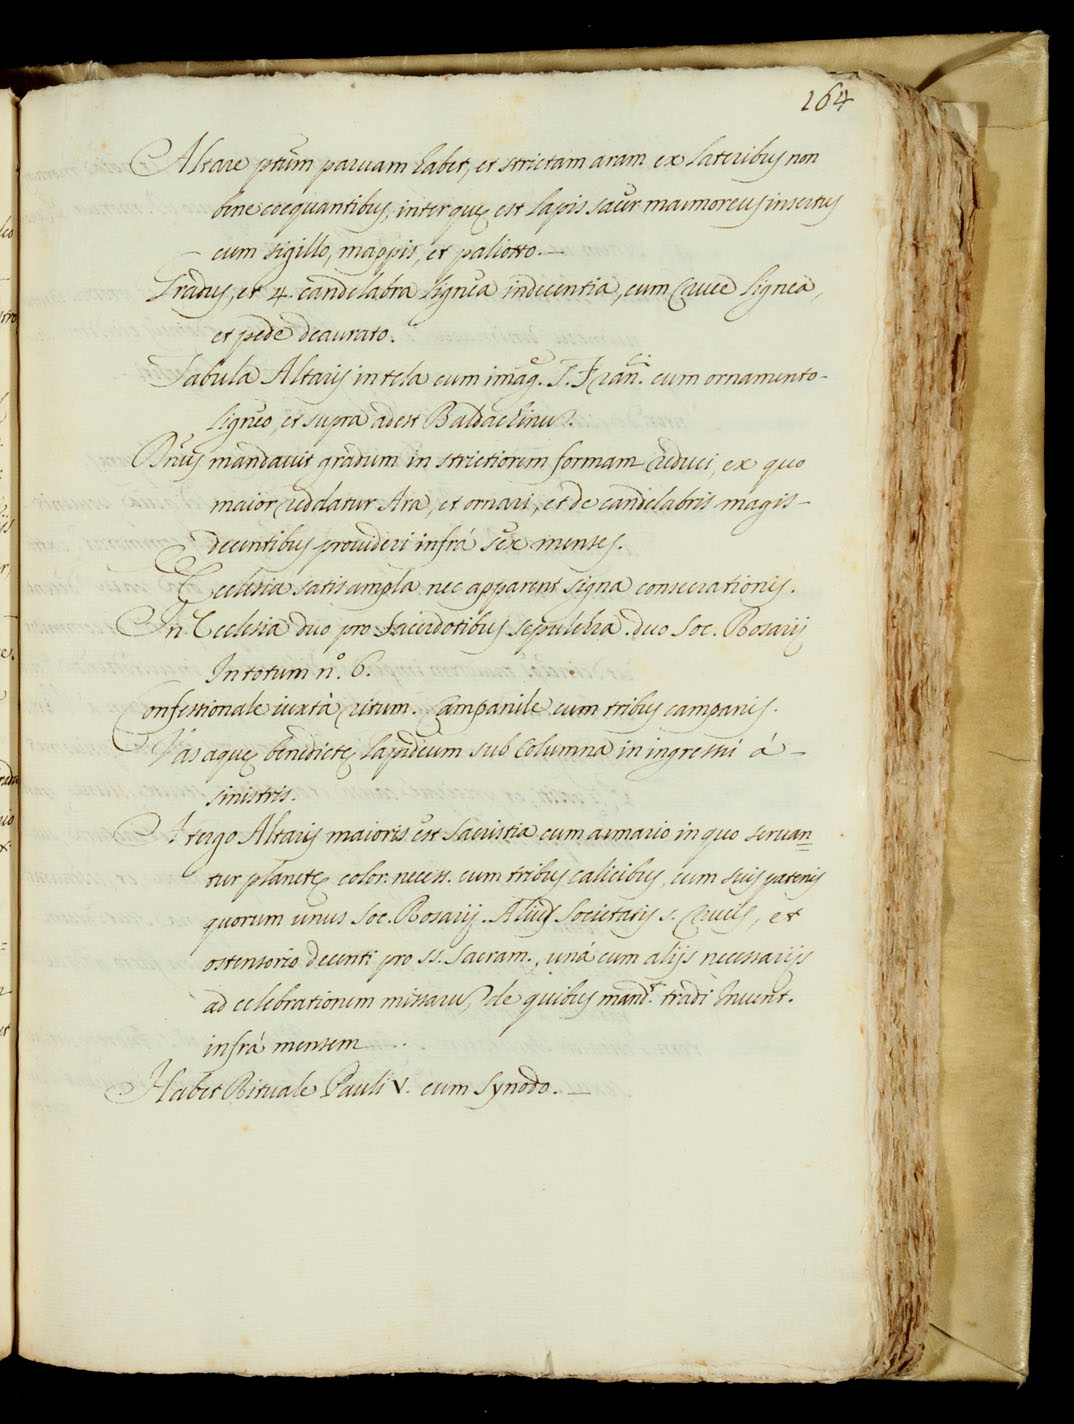 164
Altare ptũm paruam habet, et strictam aram ex lateribus non
bene coequantibus, inter quę est lapis sacer marmoreus insertus
cum sigillo, mappis, et paliotto. —
Gradus, et 4. candelabra lignea indecentia, cum Cruce lignea,
et pede deaurato.
Tabula Altaris in tela cum imag.e S. Fran.ci cum ornamento-
ligneo, et supra adest Baldachinus.
Dn̄us mandauit gradum in strictiorem formam reduci, ex quo
maior reddatur Ara, et ornari, et de candelabris magis-
decentibus prouideri infrá sex menses.
Ecclesia satis ampla nec apparent signa consecrationis.
In Ecclesia duo pro sacerdotibus sepulchra. duo Soc. Rosarij
In totum n.º 6.
Confessionale iuxtà ritum. Campanile cum tribus campanis.
Vas aquę benedictę lapideum sub Columna in ingressu á —
sinistris.
A tergo Altaris maioris est sacristia cum armario in quo seruan=
tur planetę color. necess. cum tribus calicibus, cum suis patenis
quorum unus Soc. Rosarij. Alius Societatis s. Crucis, et
ostensorio decenti pro ss. Sacram., uná cum alijs necessarijs
ad celebrationem missarũ, de quibus mand.t tradi Inuent.
infrá mensem —.
Habet Rituale Pauli V. cum Synodo. —